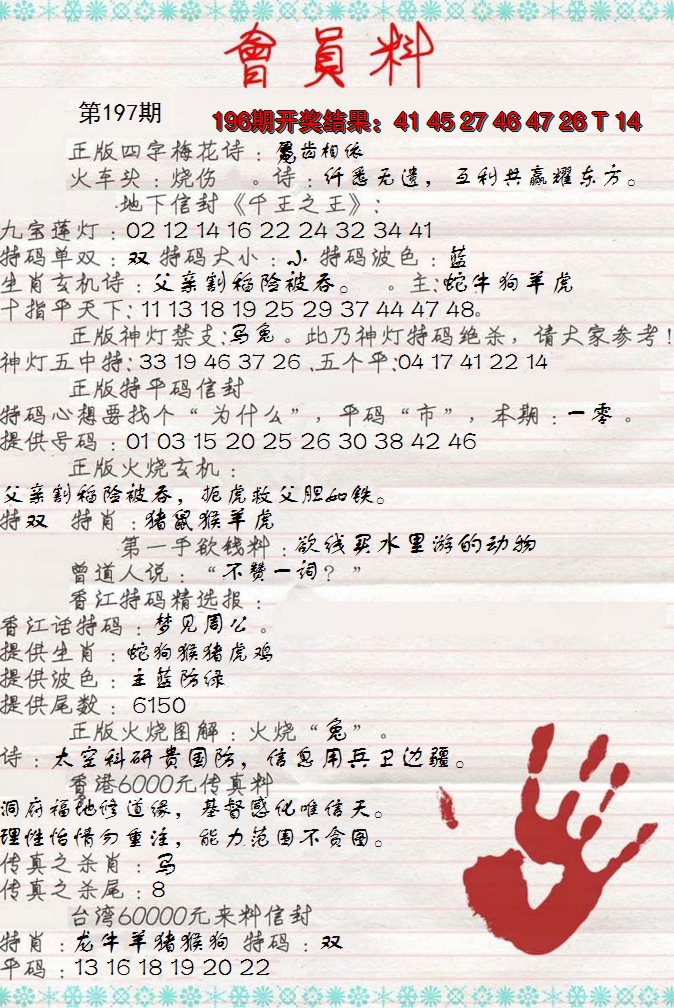 會員料
第197期
196期开奖结果：41 45 27 46 47 26 T 14
正版四字梅花诗：齿相依
火车头：烧伤 。诗：纤悉无遗，互利共赢耀东方。
地下信封《千王之王》：
九宝莲灯：02 12 14 16 22 24 32 34 41
特码单双：双 特码大小：小 特码波色：蓝
生肖玄机诗：父亲割稻险被吞。 。主：蛇牛狗羊虎
十指平天下：11 13 18 19 25 29 37 44 47 48。
正版神灯禁支：马兔。此乃神灯特码绝杀，请大家参考！
神灯五中特：33 19 46 37 26 .五个平：04 17 41 22 14
正版特平码信封
特码心想要找个“为什么”，平码“市”，本期：一零。
提供号码：01 03 15 20 25 26 30 38 42 46
正版火烧玄机：
父亲割稻险被吞，扼虎救父胆如铁。
特双 特肖：猪鼠猴羊虎
第一手欲钱料：欲钱买水里游的动物
曾道人说：“不赞一词？”
香江特码精选报：
香江话特码：梦见周公。
提供生肖：蛇狗猴猪虎鸡
提供波色：主蓝防绿
提供尾数：6150
正版火烧图解：火烧“兔”。
诗：太空科研贵国防，信息用兵卫边疆。
香港6000元传真料
洞府福地修道缘，基督感化唯信天。
理性怡情勿重注，能力范围不贪图。
传真之杀肖：马
传真之杀尾：8
台湾60000元来料信封
特肖：龙牛羊猪猴狗 特码：双
平码：13 16 18 19 20 22